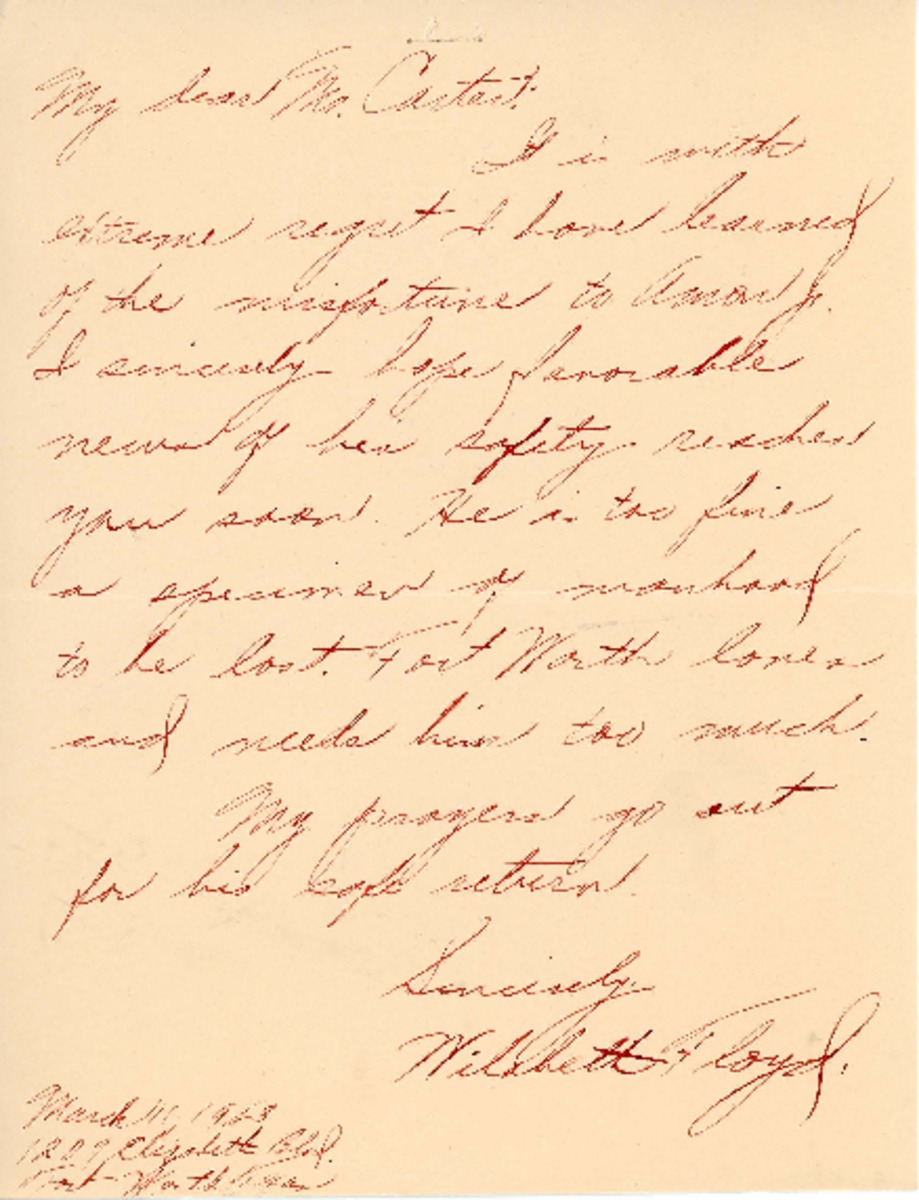 My dear Mr. Carter:
It is with
extreme regret I have learned
of the misfortune to Amon Jr.
I sincerely hope favorable
news of his safety reaches
you soon. He is too fine
a specimen of manhood
to be lost. Fort Worth loves
and needs him too much.
My prayers go out
for his safe return.
Sincerely
Floyd.
March 11, 
Elizabeth Blvd.
Fort Worth Texas